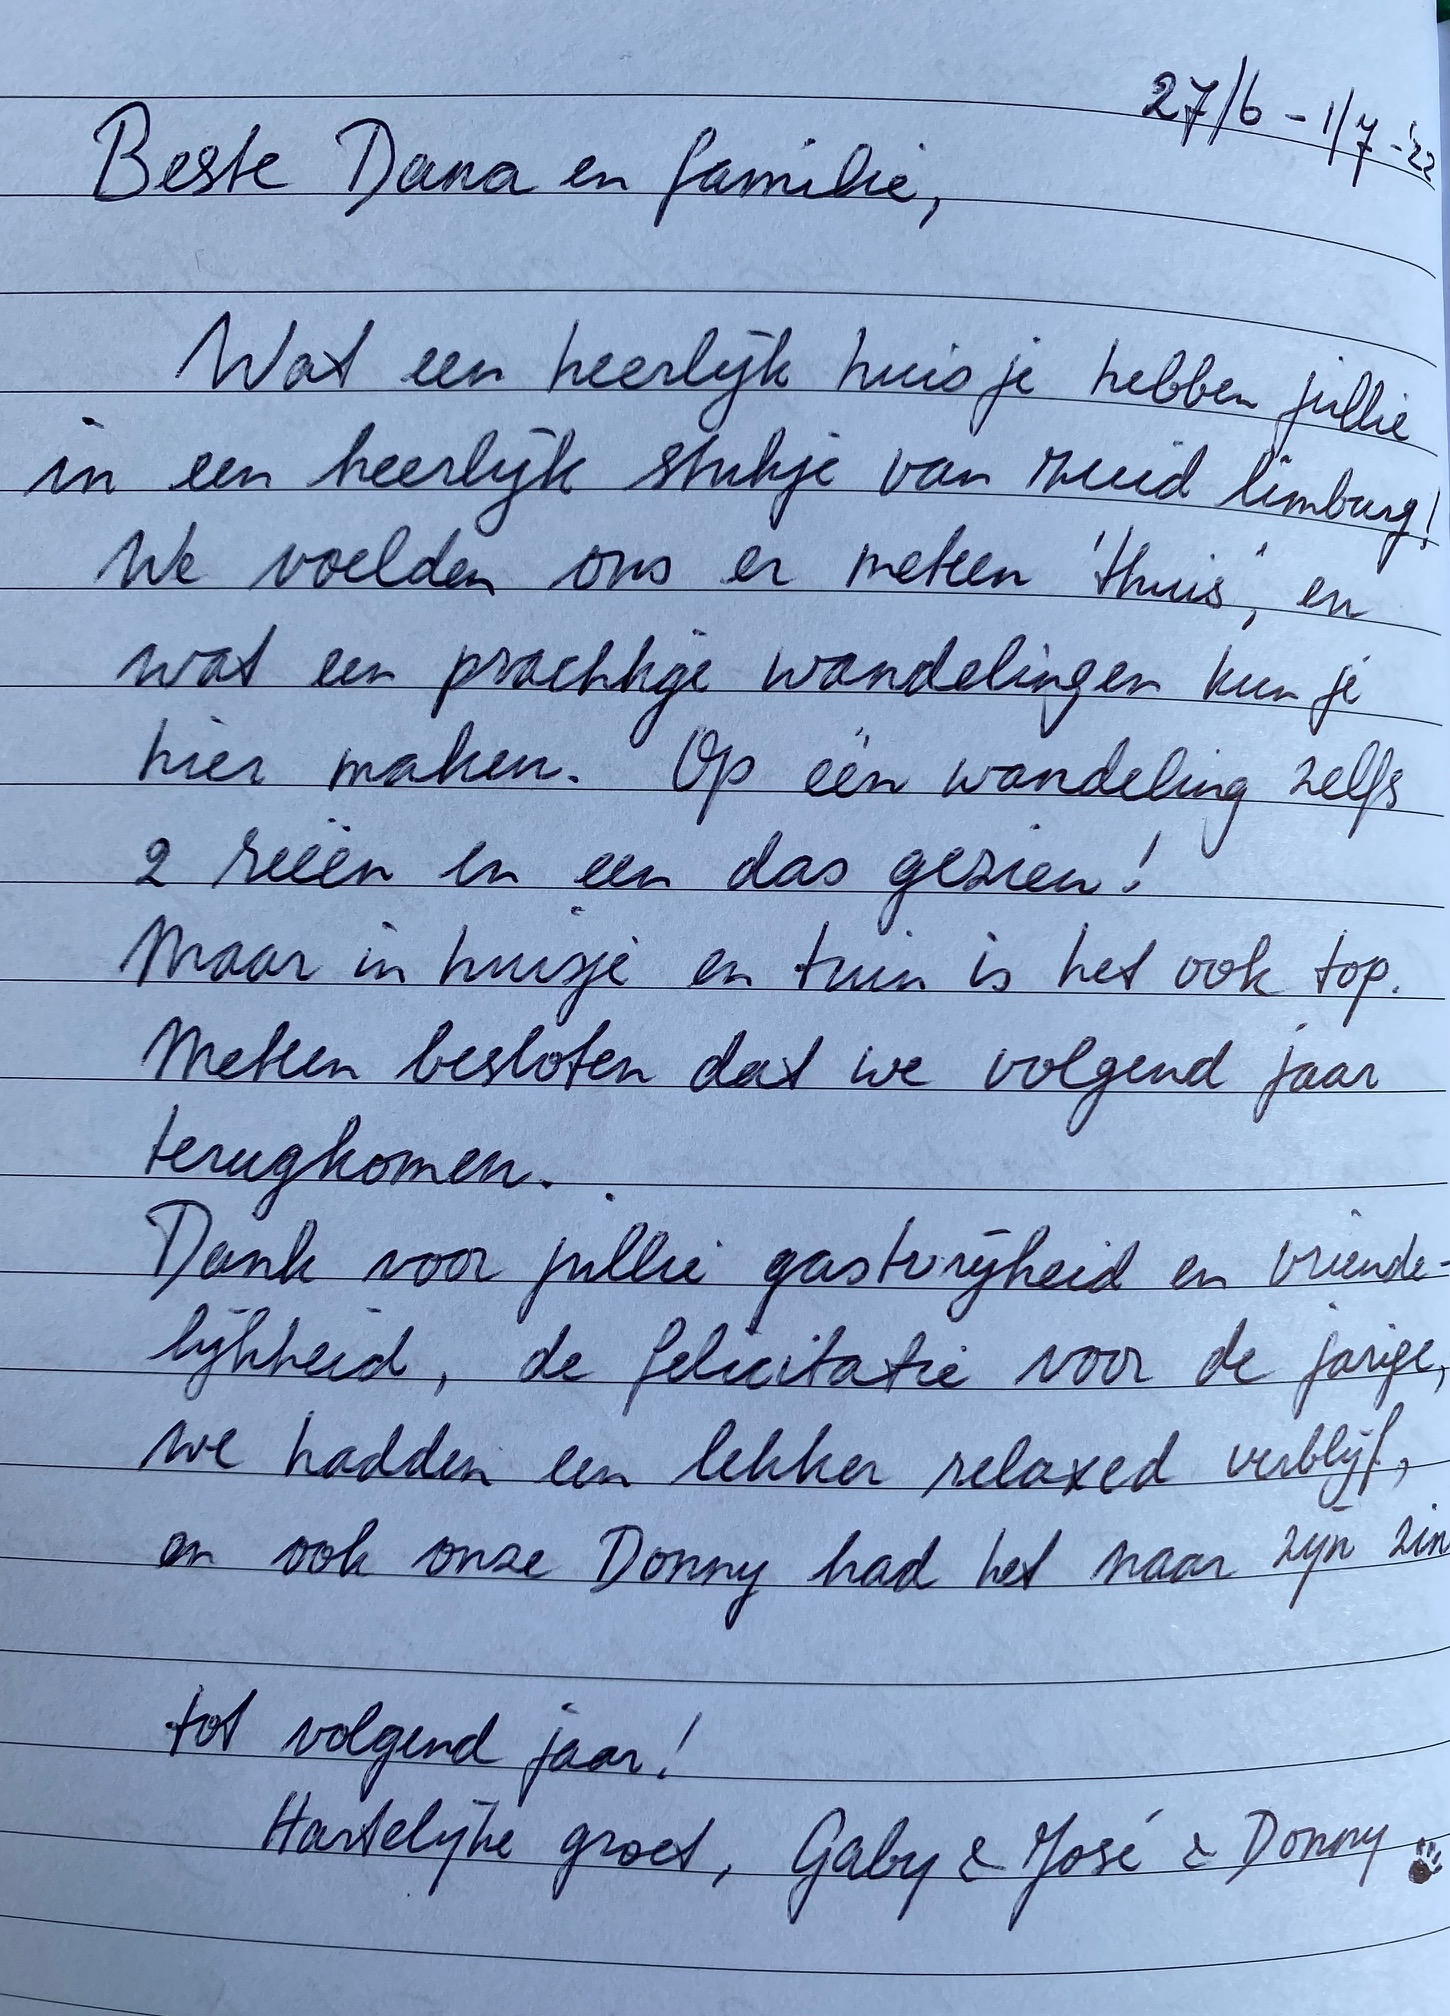 27/6 - 1/7 - '22
Beste Dana en familie,
Wat een heerlijk huisje hebben jullie
in een heerlijk stukje van zuid limburg!
We voelden ons er meteen 'thuis', en
wat een prachtige wandelingen kun je
hier maken. Op één wandeling zelfs
2 reeën en een das gezien!
Maar in huisje en tuin is het ook top.
Meteen besloten dat we volgend jaar
terugkomen.
Dank voor jullie gastvrijheid en vriende-
lijkheid, de felicitatie voor de jarige,
we hadden een lekker relaxed verblijf,
en ook onze Donny had het naar zijn zin
tot volgend jaar!
Hartelijke groet, Gaby & José & Donny